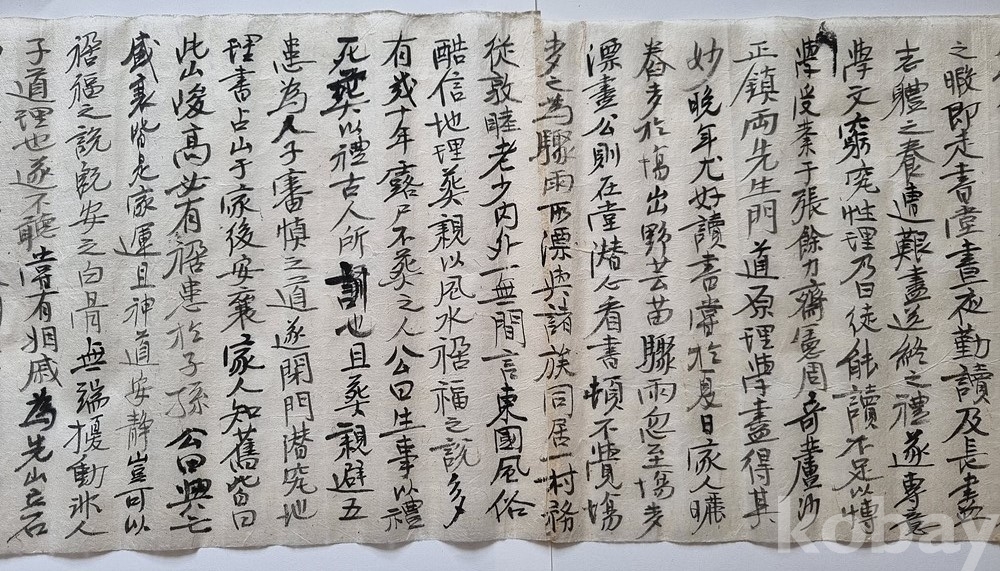 之暇即走書堂晝夜勤讀及長盡
志體之養遭艱盡送終之禮遂專意
學文窮究性理乃曰徒能讀不足以博
學受業于張餘力齋憲周奇蘆沙
正鎮両先生門道原理學盡得其
妙晚年尤好讀書嘗於夏日家人曬
舂麥於場出野芸苗驟雨忽至場麥
漂盡公則在堂潛心看書頓不覺場
麥之為驟雨所漂與諸族同居一村務
從敦睦老少內外一無間言東國風俗
酷信地理葬親以風水禍福之說多
有或十年露尸不葬之人公曰生事以禮
死葬以禮古人所訓也且葬親避五
患為人子審慎之道遂閉門潛究地
理書占山于家後安襄家人知舊皆曰
此山峻高必有禍患於子孫公曰興亡
盛衰皆是家運且神道安靜豈可以
禍福之說旣安之白骨無端擾動非人
子道理也遂不聽嘗有姻戚為先山立石
kobay